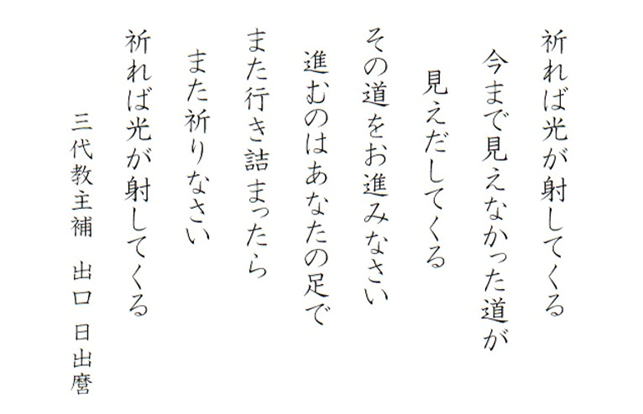 祈れば光が射してくる
今まで見えなかった道が
見えだしてくる
その道をお進みなさい
進むのはあなたの足で
また行き詰まったら
また祈りなさい
祈れば光が射してくる
三代教主補　出口 日出麿